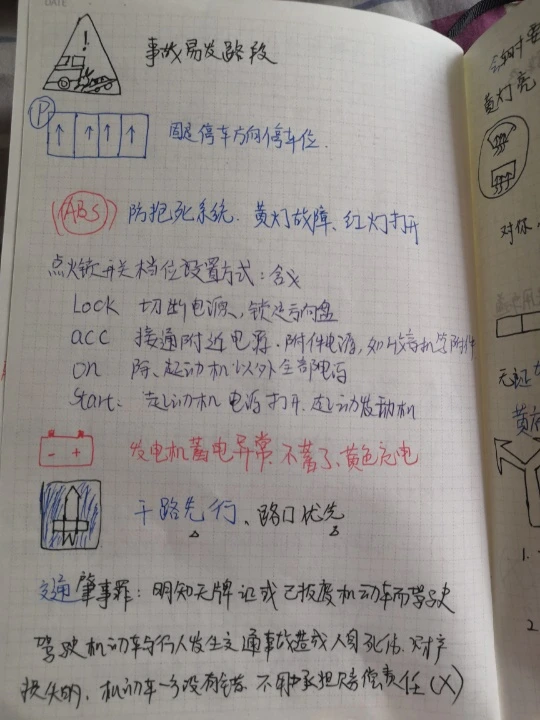 DATE
!
事故易发路段
P
固定停车方向停车位.
ABS 防抱死系统. 黄灯故障、红灯打开
点火锁开关档位设置方式:含义
Lock 切断电源、锁定方向盘
acc 接通附近电源. 附件电源,如收音机等附件
on 除、起动机以外全部电源
Start: 起动机电源打开.起动发动机
- +
发电机蓄电异常.不蓄了、黄色充电
干路先行、路口优先
交通肇事罪:明知无牌证或已报废机动车而驾驶
驾驶机动车与行人发生交通事故造成人身死伤、财产
损失的.机动车一方没有错 不用承担赔偿责任(X)
黄灯亮
对你
1.
2